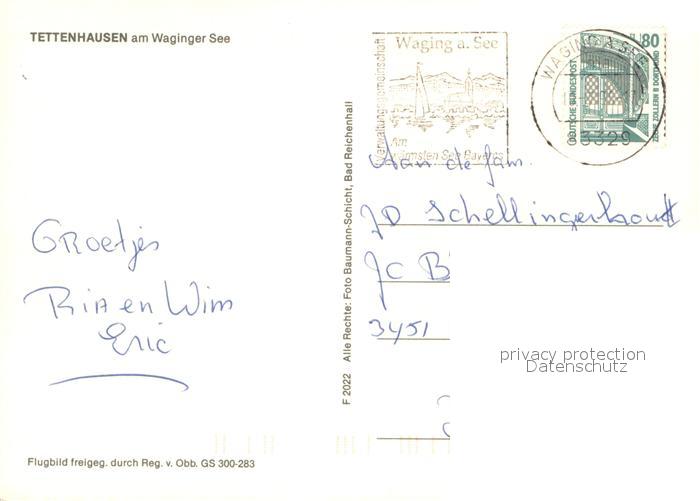 TETTENHAUSEN am Waginger See
Groetjes
Ria en Wim
Eric
Flugbild freigeg. durch Reg. v. Obb. GS 300-283
F 2022 Alle Rechte: Foto Baumann-Schicht, Bad Reichenhall
Verwaltungsgemeinschaft
Waging a. See
Am
wärmsten See Bayerns
WAGING A. SEE
DEUTSCHE BUNDESPOST
80
ZECHE ZOLLERN II DORTMUND
Aan de fam.
JD Schellingerhout
JC B
3451
privacy protection
Datenschutz